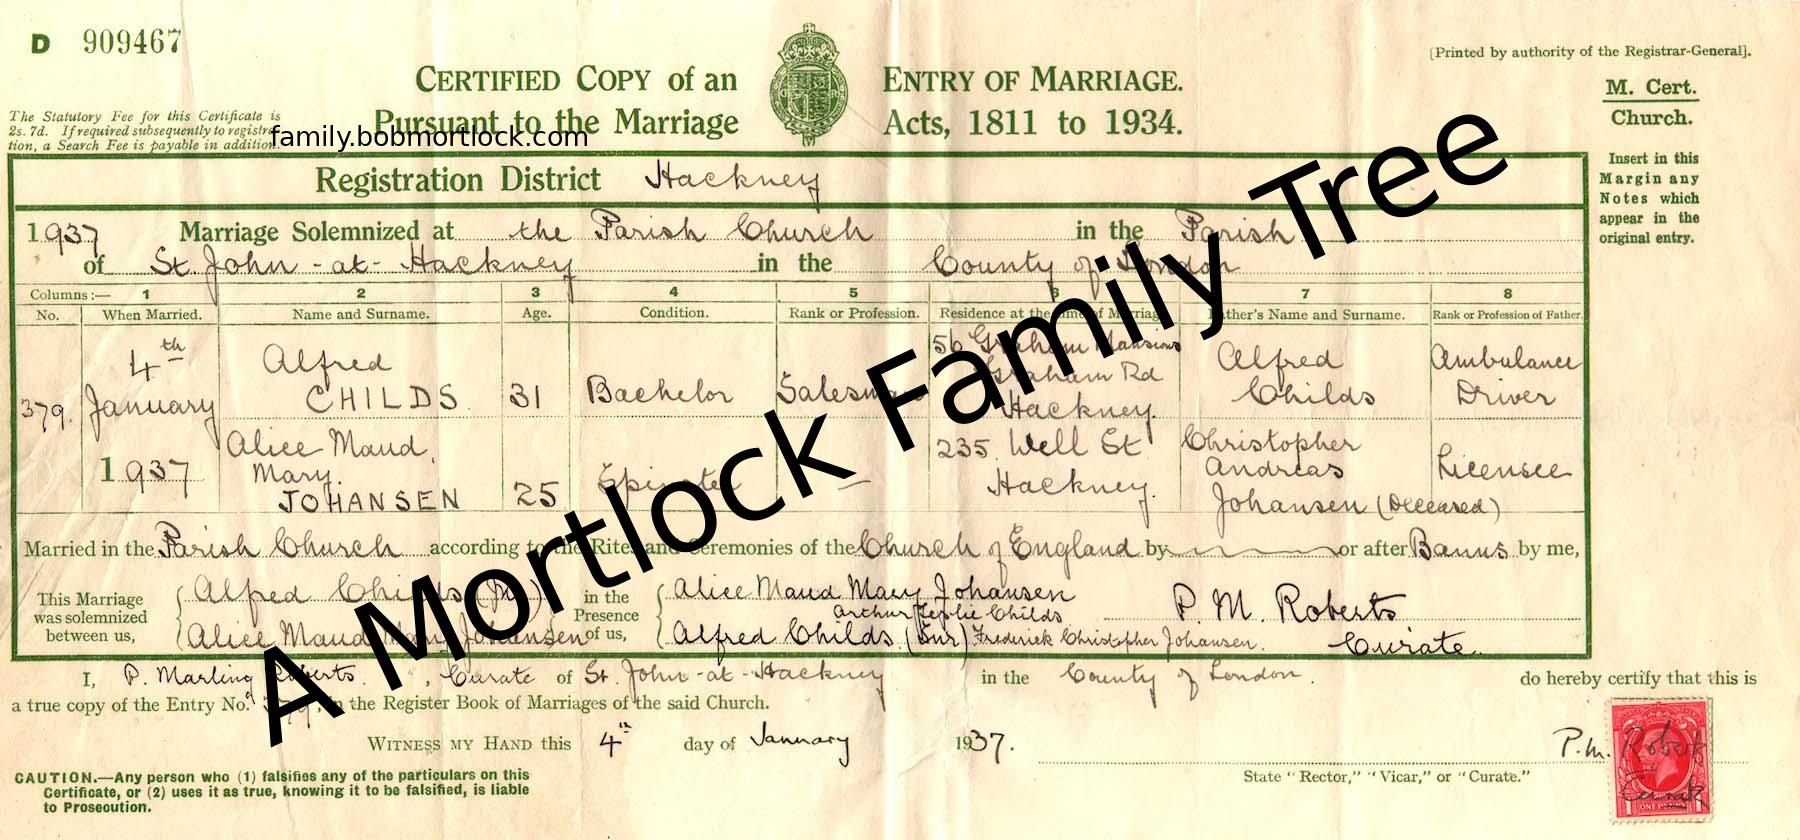 D 909467
[Printed by authority of the Registrar-General].
CERTIFIED COPY of an ENTRY OF MARRIAGE.
Pursuant to the Marriage Acts, 1811 to 1934.
M. Cert.
Church.
The Statutory Fee for this Certificate is
2s. 7d. If required subsequently to registra-
tion, a Search Fee is payable in addition.
family.bobmortlock.com
Insert in this
Margin any
Notes which
appear in the
original entry.
Registration District Hackney
1937 Marriage Solemnized at the Parish Church in the Parish
of St. John-at-Hackney in the County of London
Columns:— 1 2 3 4 5 6 7 8
No. When Married. Name and Surname. Age. Condition. Rank or Profession. Residence at the time of Marriage Father's Name and Surname. Rank or Profession of Father.
379. 4th January 1937
Alfred CHILDS 31 Bachelor Salesman 56 Graham Mansions Graham Rd Hackney. Alfred Childs Ambulance Driver
Alice Maud Mary JOHANSEN 25 Spinster — 235. Well St Hackney. Christopher Andreas Johansen (Deceased) Licensee
Married in the Parish Church according to the Rites and Ceremonies of the Church of England by or after Banns by me,
This Marriage was solemnized between us,
Alfred Childs (Jnr)
Alice Maud Mary Johansen
in the Presence of us,
Alice Maud Mary Johansen
Arthur Leslie Childs
Alfred Childs. (Snr) Frederick Christopher Johansen.
P. M. Roberts.
Curate.
I, P. Marling Roberts, Curate of St. John-at-Hackney in the County of London. do hereby certify that this is
a true copy of the Entry No. 379, in the Register Book of Marriages of the said Church.
WITNESS MY HAND this 4th day of January 1937.
P.M. Roberts
Curate
ONE PENNY
State "Rector," "Vicar," or "Curate."
CAUTION.—Any person who (1) falsifies any of the particulars on this
Certificate, or (2) uses it as true, knowing it to be falsified, is liable
to Prosecution.
A Mortlock Family Tree